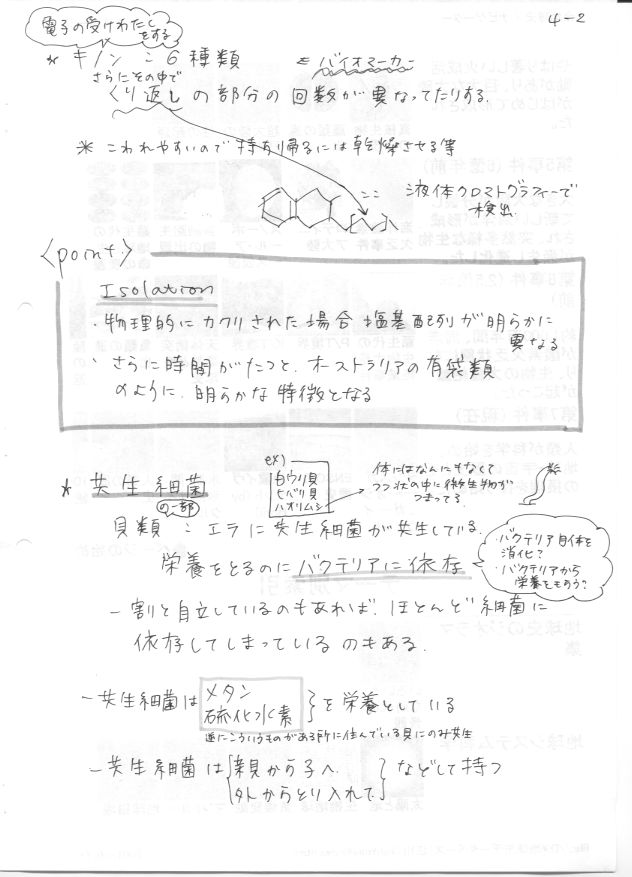 4-2
電子の受けわたしをする
* キノン : 6種類 ≡ バイオマーカー
さらにその中で
くり返しの部分の回数が異なってたりする.
* こわれやすいので持ち帰るには乾燥させる等
:: 液体クロマトグラフィーで
検出.
<point.>
Isolation
・物理的にカクリされた場合 塩基配列が明らかに
異なる
・さらに時間がたつと、オーストラリアの有袋類
のように、明らかな特徴となる
* 共生細菌
の一部
ex)
白ウリ貝
ヒバリ貝
ハオリムシ
→ 体にはなんにもなくて
フン状の中に微生物が
つまってる
貝類 : エラに共生細菌が共生している.
栄養をとるのにバクテリアに依存
・バクテリア自体を
消化?
・バクテリアから
栄養をもらう?
- 割と自立しているのもあれば、ほとんど細菌に
依存してしまっているのもある.
- 共生細菌は メタン
硫化水素 } を栄養としている
逆にこういうものがある所に住んでいる貝にのみ共生
- 共生細菌は { 親から子へ.
外からとり入れて } などして持つ